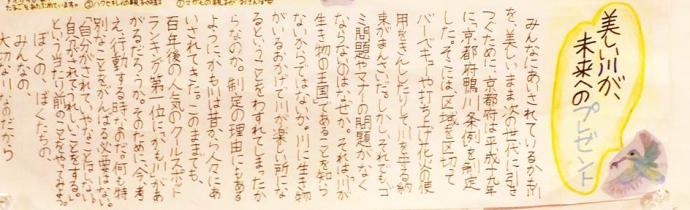 美しい川が、
未来への
プレゼント
みんなにあいされているかも川
を、美しいまま次の世代に引き
つぐために、京都府は平成十九年
に、京都府鴨川条例を制定
した。そこには、区域を区切って
バーベキューや打ち上げ花火の使
用をきんしたりして、川を守る約
束がまんさいだ。しかし、それでもゴ
ミ問題やマナーの問題がなく
ならないのはなぜか。それは、川が
「生き物の王国」であることを知ら
ないからではないか。川に生き物
がいるおかげで川が楽しい所にな
るということをわすれてしまったか
らなのか。制定の理由にもある
ように、かも川は昔から人々にあ
いされてきた。このままでも、
百年後の人気のクールスポット
ランキング第一位に、かも川があ
がるだろうか。そのために、今、考
え、行動する時なのだ。何も特
別なことをがんばる必要はない。
「自分がされて、いやなことはしない。
自分がされて、うれしいことをする。」
という当たり前のことをやってみよう。
ぼくの、ぼくたちの、
みんなの
大切な川なのだから